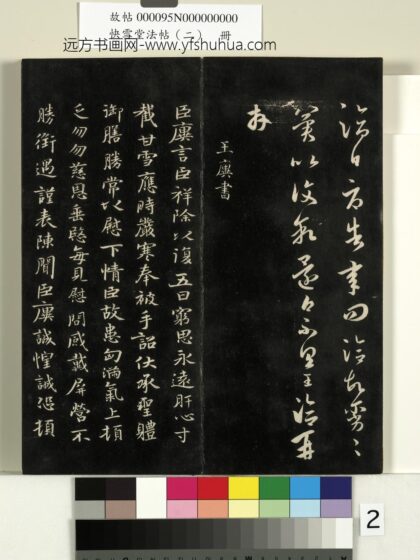 故帖 000095N000000000
快雪堂法帖（二） 册
远方书画网-www.yfshuhua.com
王洽再
拜
王廙書
臣廙言臣祥除以復五日窮思永遠肝心寸
截甘雪應時嚴寒奉被手詔伏承聖體
御膳勝常以慰下情臣故患匈滿氣上頓
乏勿勿慈恩垂愍每見慰問感戴屏營不
勝銜遇謹表陳聞臣廙誠惶誠恐頓
2